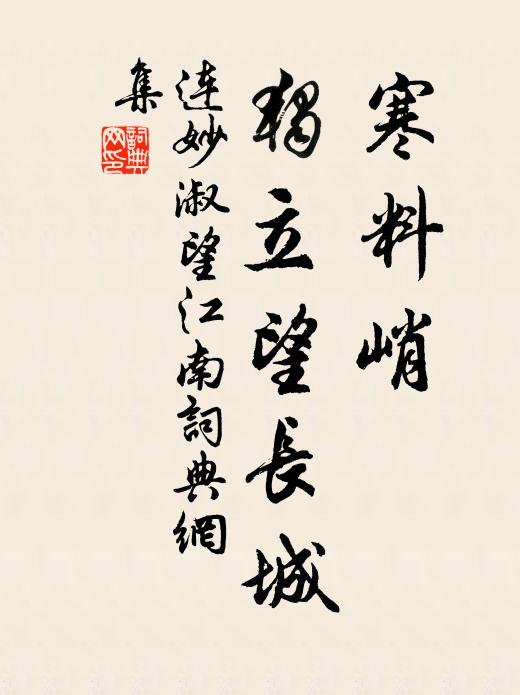 寒料峭
獨立望長城
連妙淑望江南詞典網
集
詞典
网印